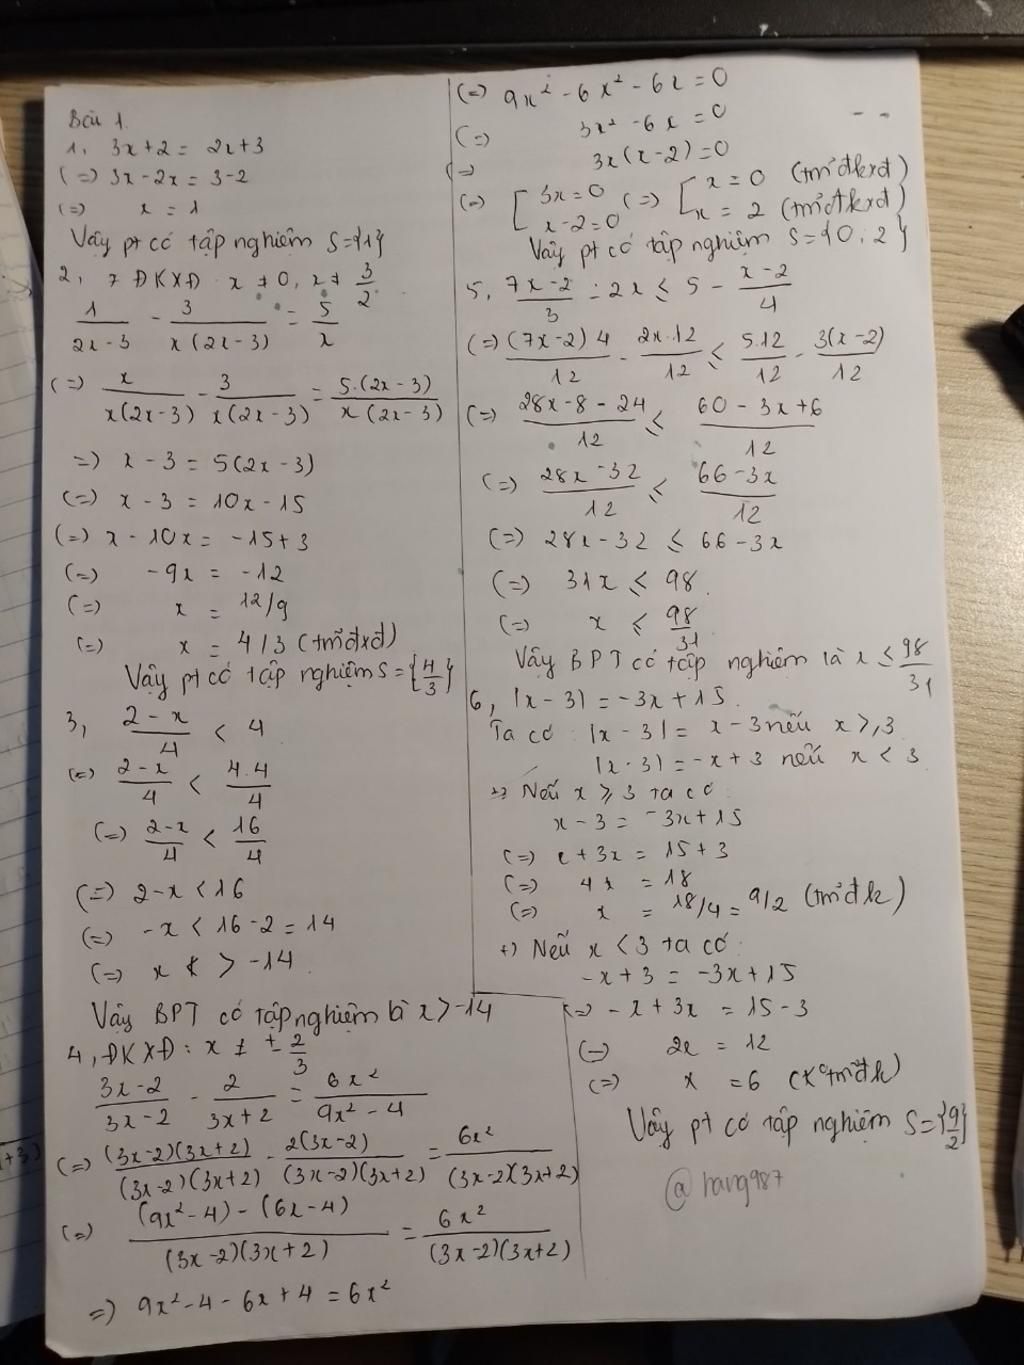 Bài 1.
1, 3x+2 = 2x+3
(=) 3x-2x = 3-2
(=) x = 1
Vậy pt có tập nghiệm S={1}
2, ĐKXĐ: x ≠ 0, x ≠ 3/2
1/(2x-3) - 3/(x(2x-3)) = 5/x
(=) x/(x(2x-3)) - 3/(x(2x-3)) = 5.(2x-3)/(x(2x-3))
=) x-3 = 5(2x-3)
(=) x-3 = 10x-15
(=) x-10x = -15+3
(=) -9x = -12
(=) x = 12/9
(=) x = 4/3 (tmđkxđ)
Vậy pt có tập nghiệm S={4/3}
3, (2-x)/4 < 4
(=) (2-x)/4 < 4.4/4
(=) (2-x)/4 < 16/4
(=) 2-x < 16
(=) -x < 16-2 = 14
(=) x > -14
Vậy BPT có tập nghiệm là x > -14
4, ĐKXĐ: x ≠ ± 2/3
(3x-2)/(3x-2) - 2/(3x+2) = 6x²/(9x²-4)
(=) (3x-2)(3x+2)/((3x-2)(3x+2)) - 2(3x-2)/((3x-2)(3x+2)) = 6x²/((3x-2)(3x+2))
(=) ((9x²-4)-(6x-4))/((3x-2)(3x+2)) = 6x²/((3x-2)(3x+2))
=) 9x²-4-6x+4 = 6x²
(=) 9x²-6x²-6x = 0
(=) 3x²-6x = 0
(=) 3x(x-2) = 0
(=) [3x=0 (=) [x=0 (tmđkxđ)
x-2=0 x=2 (tmđkxđ)
Vậy pt có tập nghiệm S={0;2}
5, (7x-2)/3 - 2x ≤ 5 - (x-2)/4
(=) (7x-2)4/12 - 2x.12/12 ≤ 5.12/12 - 3(x-2)/12
(=) (28x-8-24)/12 ≤ (60-3x+6)/12
(=) (28x-32)/12 ≤ (66-3x)/12
(=) 28x-32 ≤ 66-3x
(=) 31x ≤ 98
(=) x ≤ 98/31
Vậy BPT có tập nghiệm là x ≤ 98/31
6, |x-3| = -3x+15.
Ta có: |x-3| = x-3 nếu x ≥ 3
|x-3| = -x+3 nếu x < 3
+) Nếu x ≥ 3 ta có:
x-3 = -3x+15
(=) x+3x = 15+3
(=) 4x = 18
(=) x = 18/4 = 9/2 (tmđk)
+) Nếu x < 3 ta có:
-x+3 = -3x+15
(=) -x+3x = 15-3
(=) 2x = 12
(=) x = 6 (K°tmđk)
Vậy pt có tập nghiệm S={9/2}
@hang987